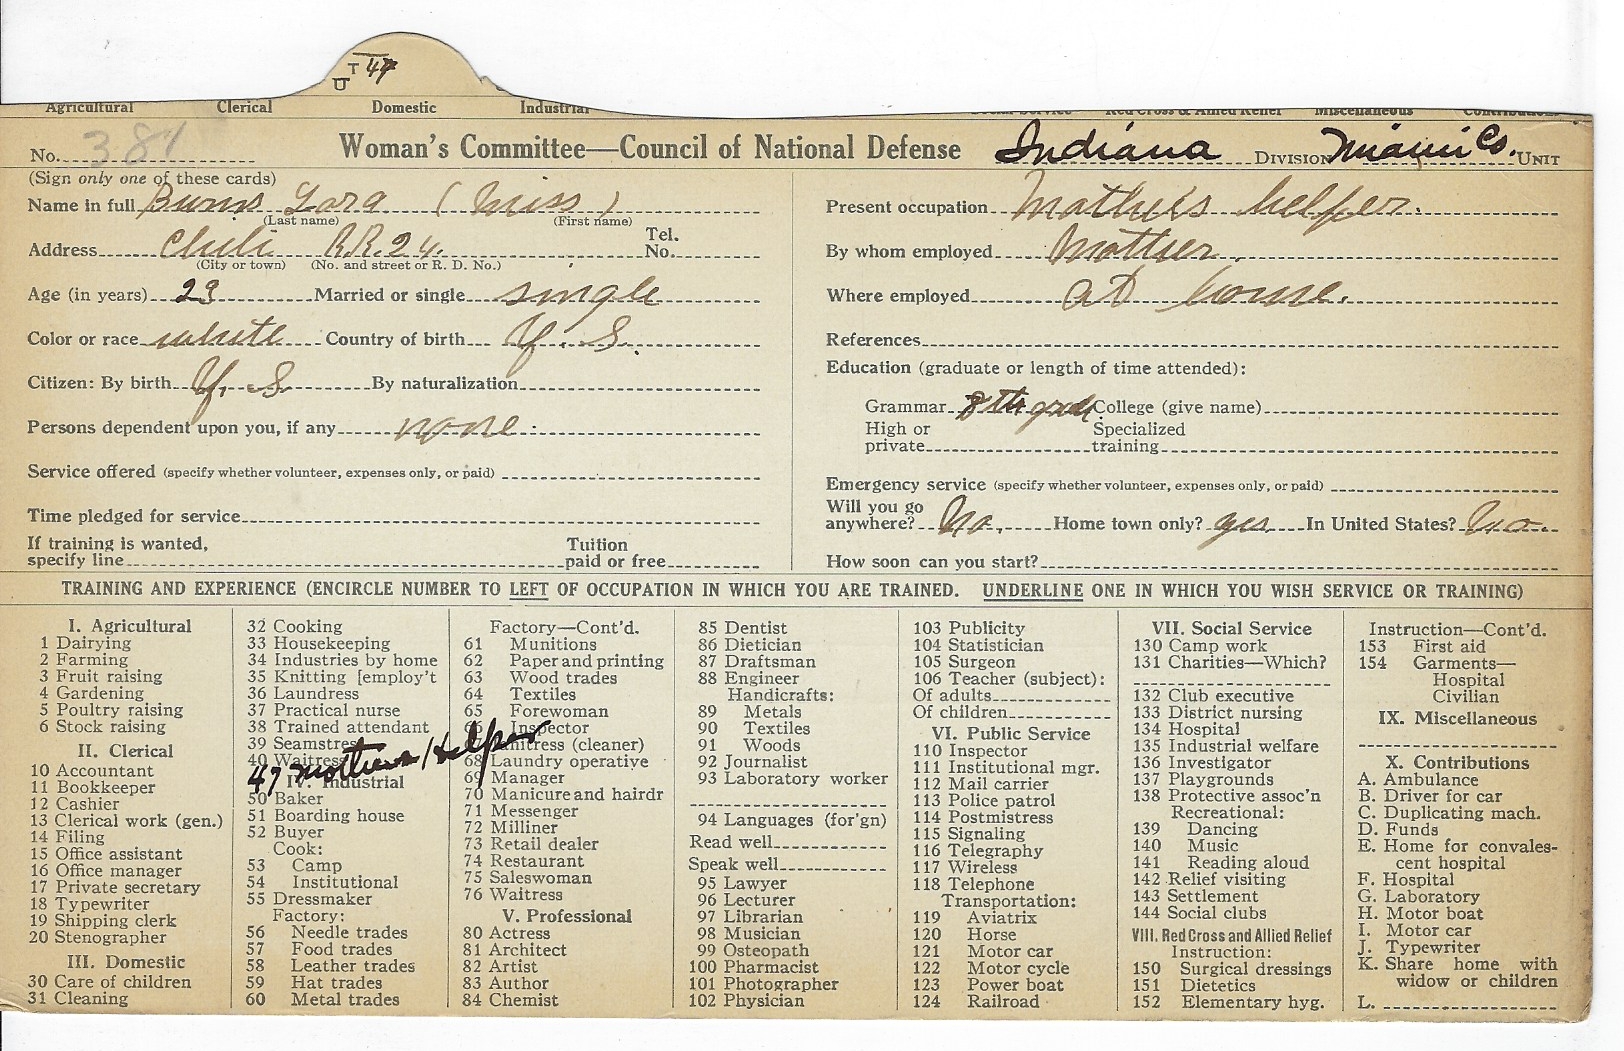 T 47
U
Agricultural Clerical Domestic Industrial Social Service Red Cross & Allied Relief Miscellaneous Contributions
No. 381 Woman's Committee—Council of National Defense Indiana Division Miami Co. Unit
(Sign only one of these cards)
Name in full Burns (Miss)
(Last name) (First name)
Address Chili R.R. 24. Tel. No.
(City or town) (No. and street or R. D. No.)
Age (in years) 23 Married or single single
Color or race white Country of birth U. S.
Citizen: By birth U. S. By naturalization
Persons dependent upon you, if any none.
Service offered (specify whether volunteer, expenses only, or paid)
Time pledged for service
If training is wanted, specify line Tuition paid or free
Present occupation Mother's helper.
By whom employed Mother.
Where employed at home.
References
Education (graduate or length of time attended):
Grammar 8th grade College (give name)
High or private Specialized training
Emergency service (specify whether volunteer, expenses only, or paid)
Will you go anywhere? No. Home town only? yes In United States? No.
How soon can you start?
TRAINING AND EXPERIENCE (ENCIRCLE NUMBER TO LEFT OF OCCUPATION IN WHICH YOU ARE TRAINED. UNDERLINE ONE IN WHICH YOU WISH SERVICE OR TRAINING)
I. Agricultural
1 Dairying
2 Farming
3 Fruit raising
4 Gardening
5 Poultry raising
6 Stock raising
II. Clerical
10 Accountant
11 Bookkeeper
12 Cashier
13 Clerical work (gen.)
14 Filing
15 Office assistant
16 Office manager
17 Private secretary
18 Typewriter
19 Shipping clerk
20 Stenographer
III. Domestic
30 Care of children
31 Cleaning
32 Cooking
33 Housekeeping
34 Industries by home
35 Knitting [employ't
36 Laundress
37 Practical nurse
38 Trained attendant
39 Seamstress
40 Waitress
47 Mothers Helper
IV. Industrial
50 Baker
51 Boarding house
52 Buyer
Cook:
53 Camp
54 Institutional
55 Dressmaker
Factory:
56 Needle trades
57 Food trades
58 Leather trades
59 Hat trades
60 Metal trades
Factory—Cont'd.
61 Munitions
62 Paper and printing
63 Wood trades
64 Textiles
65 Forewoman
66 Inspector
67 Janitress (cleaner)
68 Laundry operative
69 Manager
70 Manicure and hairdr
71 Messenger
72 Milliner
73 Retail dealer
74 Restaurant
75 Saleswoman
76 Waitress
V. Professional
80 Actress
81 Architect
82 Artist
83 Author
84 Chemist
85 Dentist
86 Dietician
87 Draftsman
88 Engineer
Handicrafts:
89 Metals
90 Textiles
91 Woods
92 Journalist
93 Laboratory worker
94 Languages (for'gn)
Read well
Speak well
95 Lawyer
96 Lecturer
97 Librarian
98 Musician
99 Osteopath
100 Pharmacist
101 Photographer
102 Physician
103 Publicity
104 Statistician
105 Surgeon
106 Teacher (subject):
Of adults
Of children
VI. Public Service
110 Inspector
111 Institutional mgr.
112 Mail carrier
113 Police patrol
114 Postmistress
115 Signaling
116 Telegraphy
117 Wireless
118 Telephone
Transportation:
119 Aviatrix
120 Horse
121 Motor car
122 Motor cycle
123 Power boat
124 Railroad
VII. Social Service
130 Camp work
131 Charities—Which?
132 Club executive
133 District nursing
134 Hospital
135 Industrial welfare
136 Investigator
137 Playgrounds
138 Protective assoc'n
Recreational:
139 Dancing
140 Music
141 Reading aloud
142 Relief visiting
143 Settlement
144 Social clubs
VIII. Red Cross and Allied Relief
Instruction:
150 Surgical dressings
151 Dietetics
152 Elementary hyg.
Instruction—Cont'd.
153 First aid
154 Garments—
Hospital
Civilian
IX. Miscellaneous
X. Contributions
A. Ambulance
B. Driver for car
C. Duplicating mach.
D. Funds
E. Home for convales-
cent hospital
F. Hospital
G. Laboratory
H. Motor boat
I. Motor car
J. Typewriter
K. Share home with
widow or children
L.